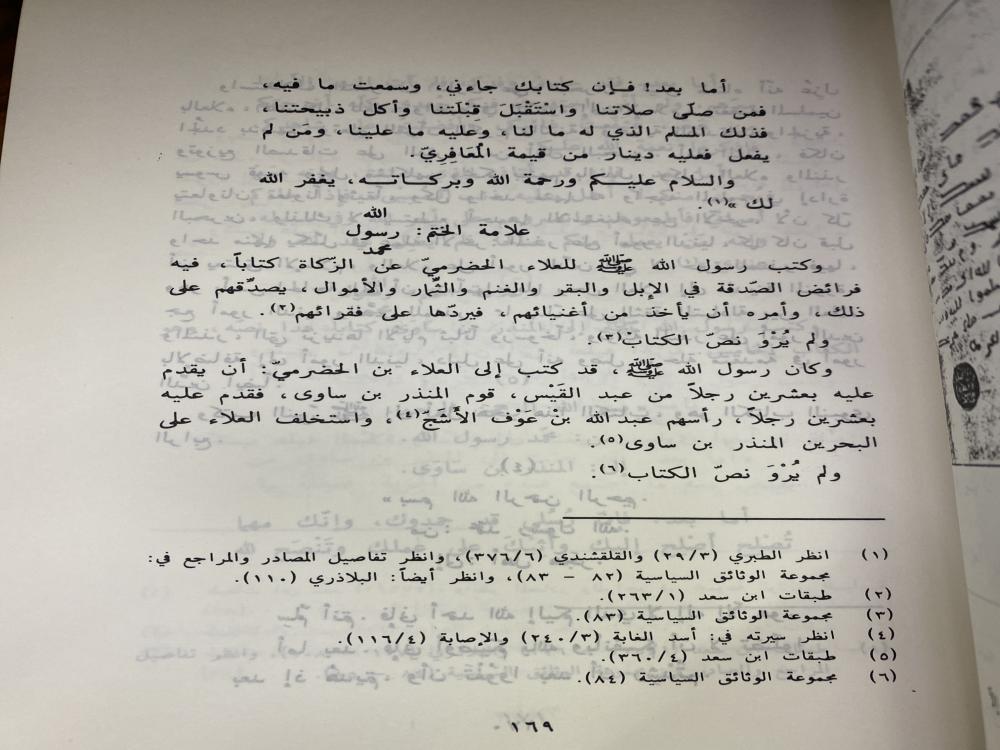 أما بعد! فإن كتابك جاءني، وسمعت ما فيه،
فمن صلَّى صلاتنا واسْتَقْبَلَ قِبْلَتنا وأكل ذبيحتنا،
فذلك المسلم الذي له ما لنا، وعليه ما علينا، ومَن لم
يفعل فعليه دينار من قيمة المُعَافِرِيّ.
والسلام عليكم ورحمة الله وبركاته، يغفر الله
لك»(١).
الله
علامة الختم: رسول
محمد
وكتب رسول الله ﷺ للعلاء الحضرميّ عن الزّكاة كتاباً، فيه
فرائض الصّدقة في الإبل والبقر والغنم والثِّمار والأموال، يصدّقهم على
ذلك، وأمره أن يأخذ من أغنيائهم، فيردّها على فقرائهم(٢).
ولم يُرْوَ نصّ الكتاب(٣).
وكان رسول الله ﷺ، قد كتب إلى العلاء بن الحضرميّ: أن يقدم
عليه بعشرين رجلاً من عبد القَيْس، قوم المنذر بن ساوى، فقدم عليه
بعشرين رجلاً، رأسهم عبدالله بنْ عَوْف الأشَجّ(٤)، واستخلف العلاء على
البحرين المنذر بن ساوى(٥).
ولم يُرْوَ نصّ الكتاب(٦).
(١) انظر الطبري (٢٩/٣) والقلقشندي (٣٧٦/٦)، وانظر تفاصيل المصادر والمراجع في:
مجموعة الوثائق السياسية (٨٢ – ٨٣)، وانظر أيضاً: البلاذري (١١٠).
(٢) طبقات ابن سعد (٢٦٣/١).
(٣) مجموعة الوثائق السياسية (٨٣).
(٤) انظر سيرته في: أسد الغابة (٢٤٠/٣) والإصابة (١١٦/٤).
(٥) طبقات ابن سعد (٣٦٠/٤).
(٦) مجموعة الوثائق السياسية (٨٤).
١٦٩